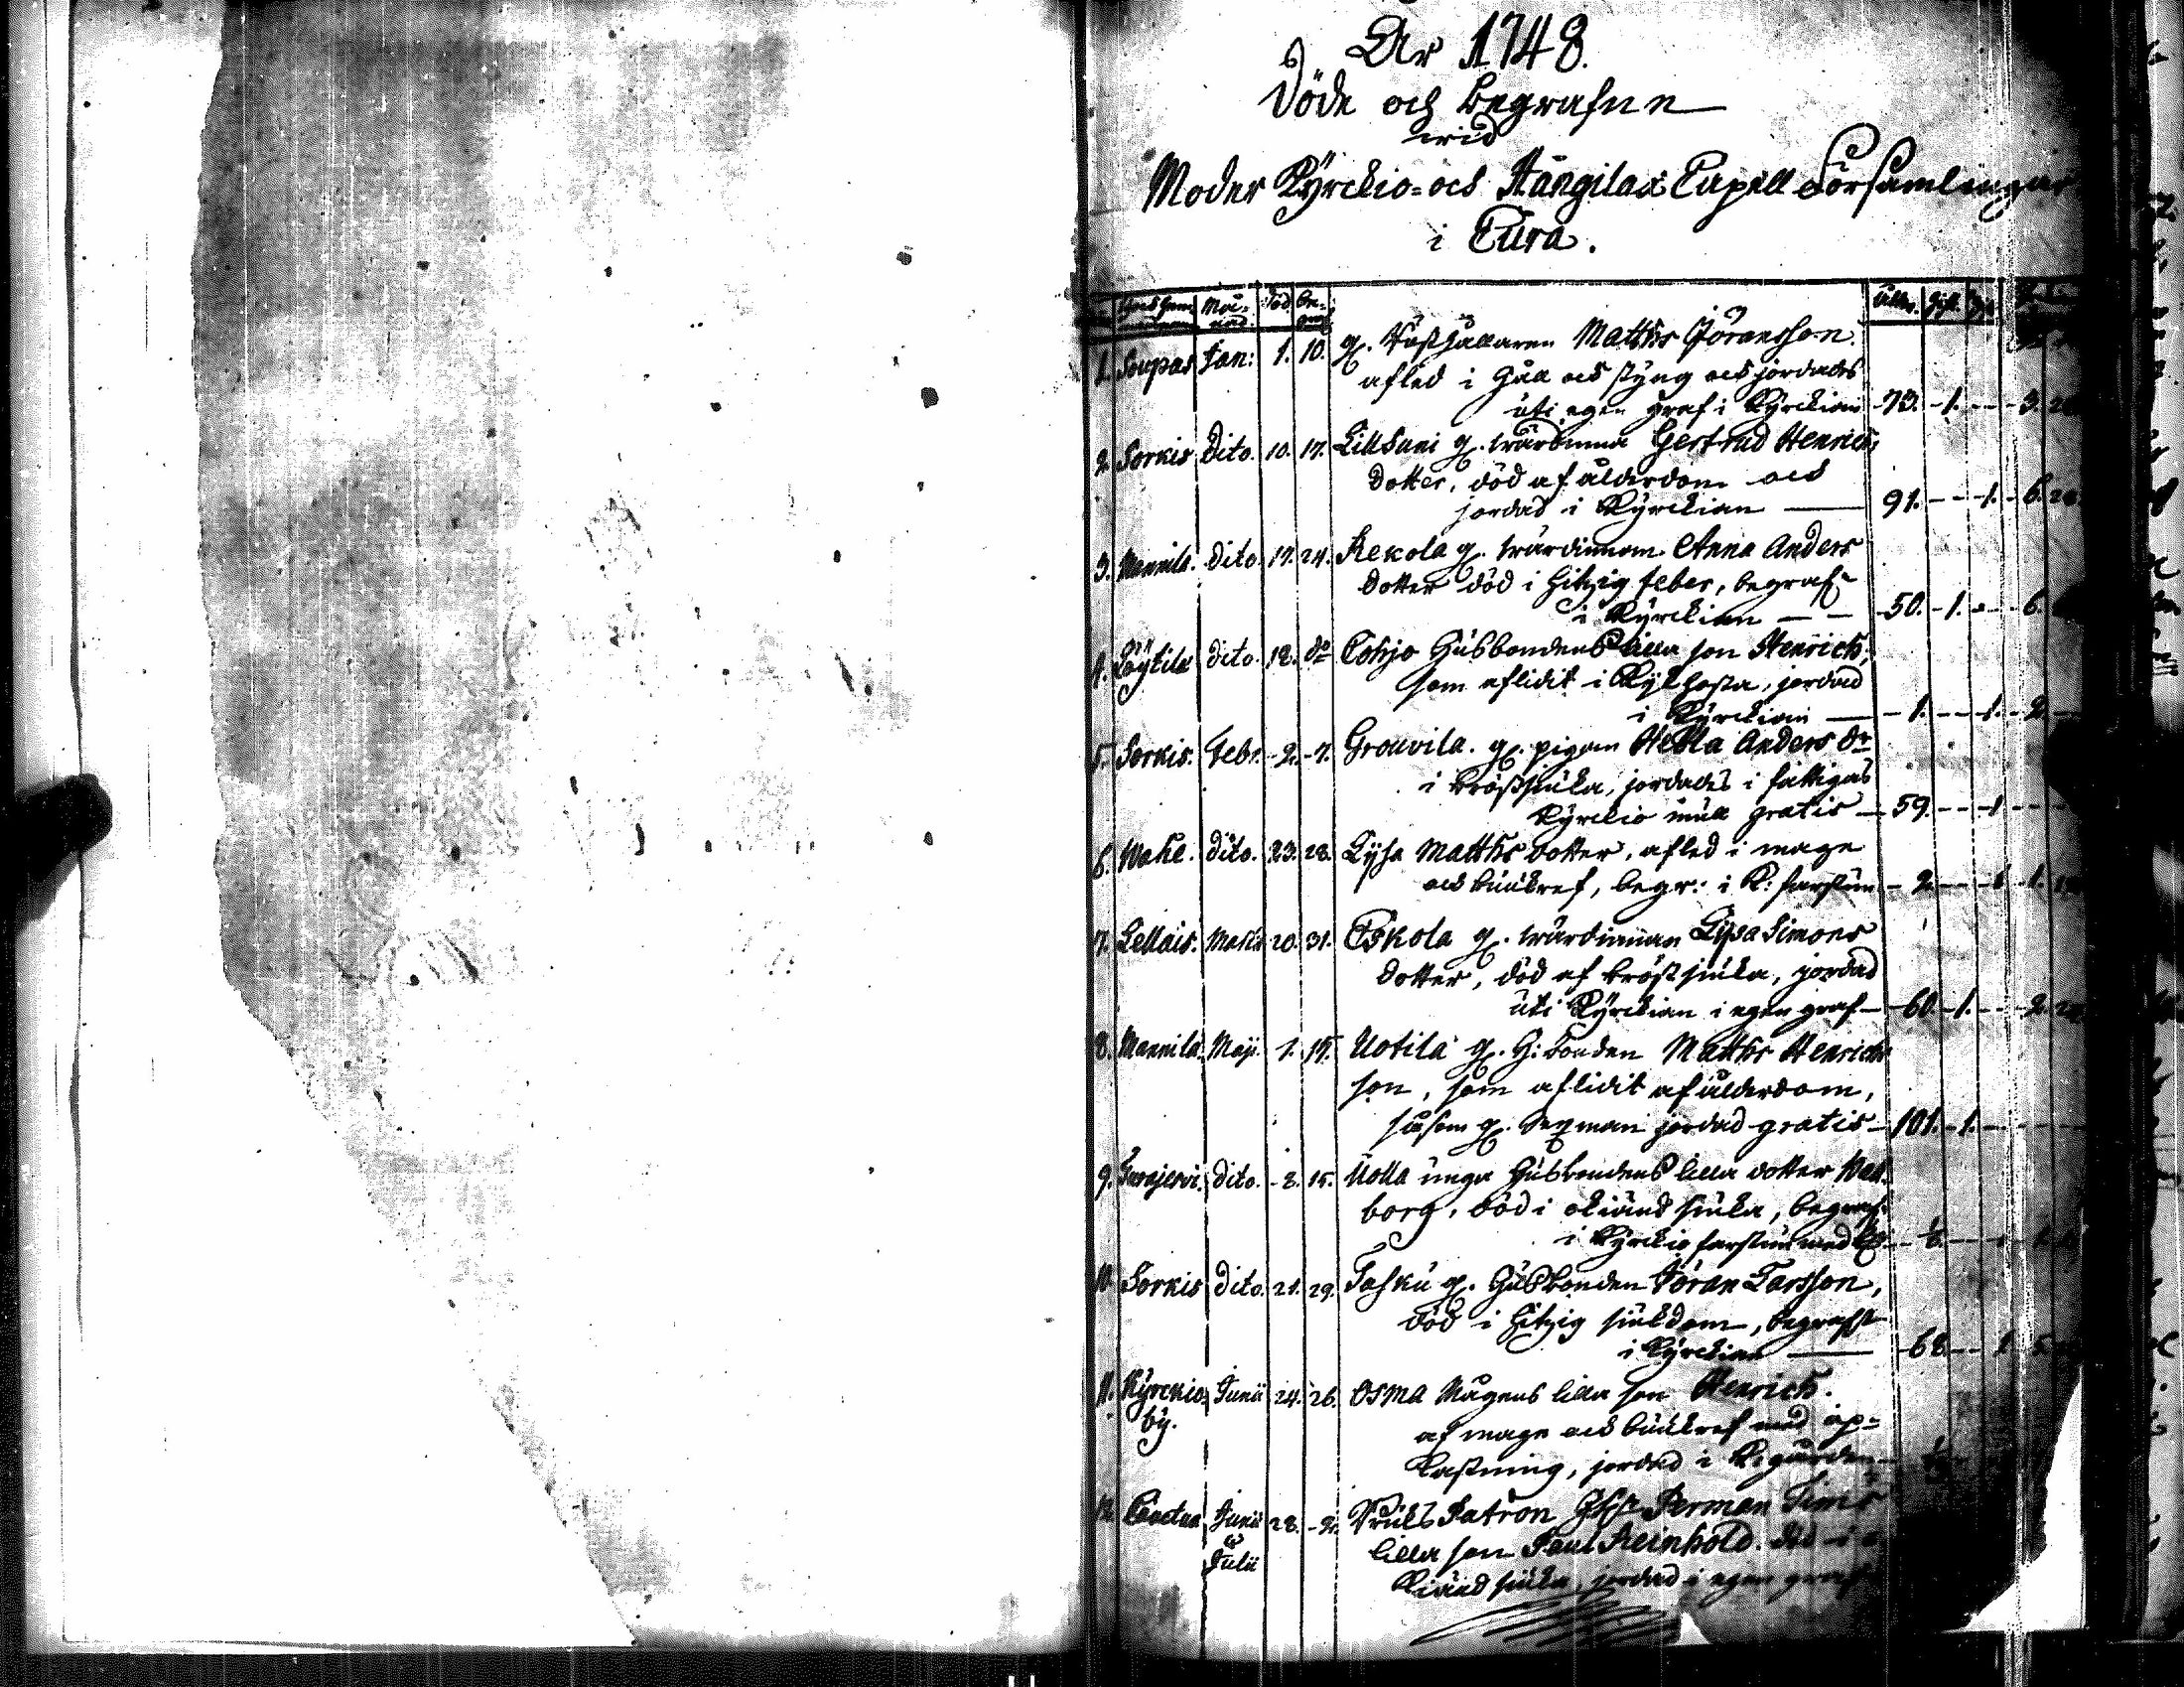 År 1748.
Döde och begrafne
wid
Moder Kyrckio= och Hångilax Capell Församlingar
i Eura.
Må-
nad Död Be-
graf. Åld.
1. Soupas Jan: 1. 10. g. Rusthållaren Matths Jöransson.
afled i håll och styng och jordades
uti egen graf i Kyrckian 73. 1. 3.
2. Sorkis Dito. 10. 17. Lillsuni g. wärdinna Gertrud Henrichs
dotter, död af ålderdom och
jordad i Kyrckian 91. 1. 6.
3. Mannila. dito. 17. 24. Kekola g. wärdinnan Anna Anders
dotter död i hitzig feber, begraf.
i Kyrckian 50. 1. 6.
4. Löytilä dito. 18. do Tohjo Husbondens lilla son Henrich,
som aflidit i Kykhosta, jordad
i Kyrckian 1. 1. 2.
5. Sorkis. Febr. 2. 7. Grouvila. g. pigan Hebla Anders dr
i bröstsiuka, jordades i fattigas
Kyrckio mull gratis 59. 1
6. Wahe. dito. 23. 28. Lysa Matths dotter, afled i mage
och buukref, begr: i K: farstun 2. 1 1.
7. Lellais. Martii 20. 31. Eskola g. wärdinnan Lisa Simons
dotter, död af bröstsiuka, jordad
uti Kyrckian i egen graf 60. 1. 2.
8. Mannila. Maji. 1. 15. Uotila g. H: bonden Matths Henrichs
son, som aflidit af ålderdom,
såsom g. Sexman jordad gratis 101. 1.
9. Turajervi. dito. 8. 15. Uolla unga Husbondens lilla dotter Wal-
borg, död i okiänd siuka, begraf.
i Kyrckio farstun med
10 Sorkis dito. 21. 29. Tasku g. Husbonden Jöran Larsson,
död i hitzig siukdom, begrafs
i Kyrckian 68. 1 5.
11. Kyrckio
by. Junii 24. 26. Osma Mågens lilla son Henrich.
af mage och buukref med up-
kastning, jordad i K:gården
12. Junii
Julii 28. 2. Bruks Patron Herman
lilla son Paul Reinhold. död i o-
kiänd siuka, jordad i egen graf